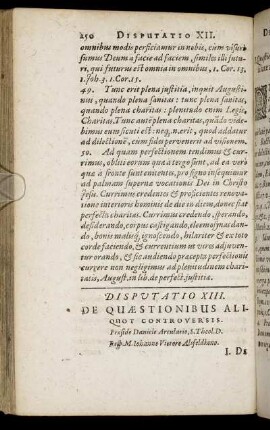 250 DISPUTATIO XII.
omnibus modis perficiamur in nobis, cum visuri
sumus Deum a facie ad faciem, similes illi futu-
ri, qui futurus est omnia in omnibus, 1. Cor. 15.
1. Joh. 3. 1. Cor. 15.
49. Tunc erit plena justitia, inquit Augusti-
nus, quando plena sanitas: tunc plena sanitas,
quando plena charitas: plenitudo enim Legis,
Charitas. Tunc autē plena charitas, quādo vide-
bimus eum sicuti est: neq, n. erit, quod addatur
ad dilectionē, cum fides pervenerit ad visionem.
50. Ad quam perfectionem tendimus & cur-
rimus, obliti eorum quæ à tergo sunt, ad ea verò
quæ à fronte sunt enitentes, pro signo insequimur
ad palmam supernæ vocationis Dei in Christo
Jesu. Currimus credentes & proficientes renova-
tione interioris hominis de die in diem, donec fiat
perfecta charitas. Currimus credendo, sperando,
desiderando, corpus castigando, eleemosynas dan-
do, bonis malisq; ignoscendo, hilariter & ex toto
corde faciendo, & currentium in vires adjuven-
tur orando, & sic audiendo præcepta perfectionis
currere non negligimus ad plenitudinem chari-
tatis, August. in lib. de perfect. justitiæ.
DISPUTATIO XIII.
DE QUÆSTIONIBUS ALI-
QUOT CONTROVERSIS.
Præside Daniele Arculario, S. Theol. D.
Resp. M. Johanne Vietore Alsfeldiano.
1. De